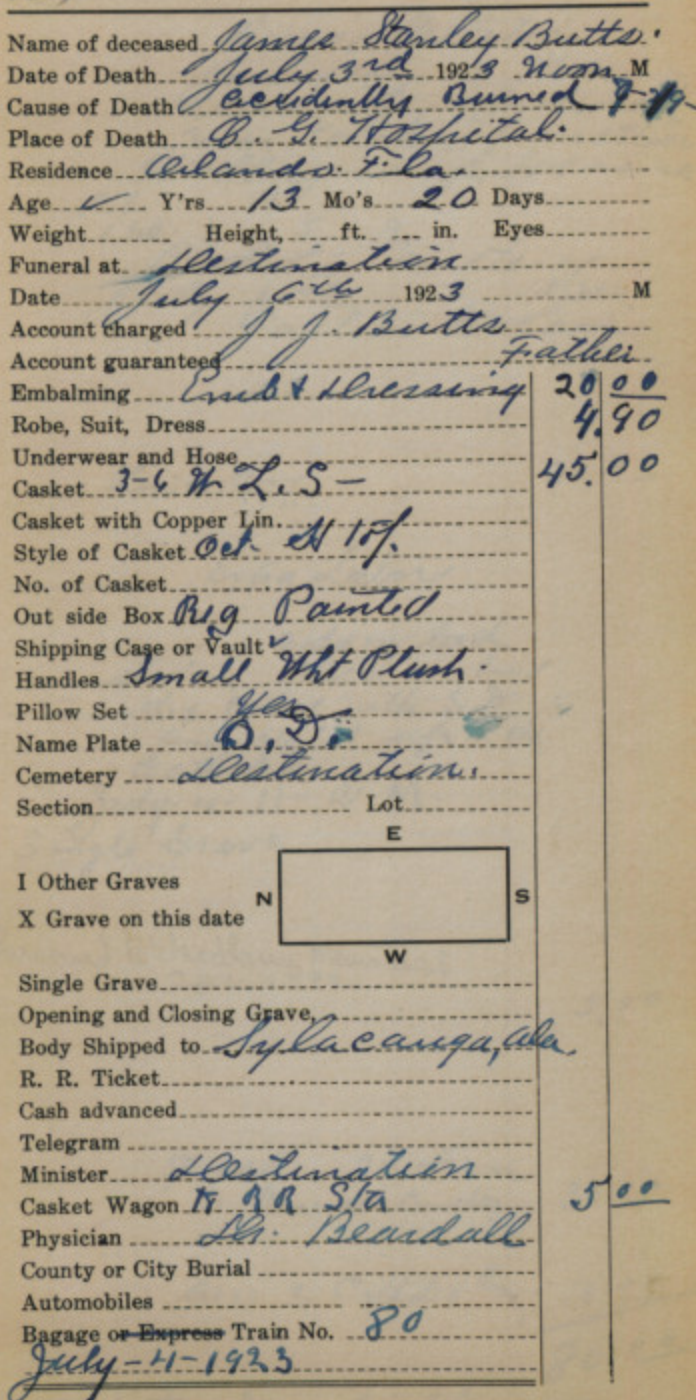 Name of deceased James Stanley Butts.
Date of Death July 3rd 1923 Noon M
Cause of Death accidently Burned
Place of Death O. G. Hospital.
Residence Orlando. Fla.
Age ✓ Y'rs 13 Mo's 20 Days
Weight Height, ft. in. Eyes
Funeral at Destination
Date July 6th 1923 M
Account charged J. J. Butts
Account guaranteed Father
Embalming Emb & Dressing 20 00
Robe, Suit, Dress 4.90
Underwear and Hose
Casket 3-6 W L. S - 45.00
Casket with Copper Lin.
Style of Casket Oct.
No. of Casket
Out side Box Reg Painted
Shipping Case or Vault ✓
Handles Small Wht Plush.
Pillow Set Yes
Name Plate O. D.
Cemetery Destination.
Section Lot
E
I Other Graves
N S
X Grave on this date
W
Single Grave
Opening and Closing Grave,
Body Shipped to Sylacauga, Ala.
R. R. Ticket
Cash advanced
Telegram
Minister Destination
Casket Wagon to RR Sta 5 00
Physician Dr. Beardall
County or City Burial
Automobiles
Bagage or Express Train No. 80
July-4-1923